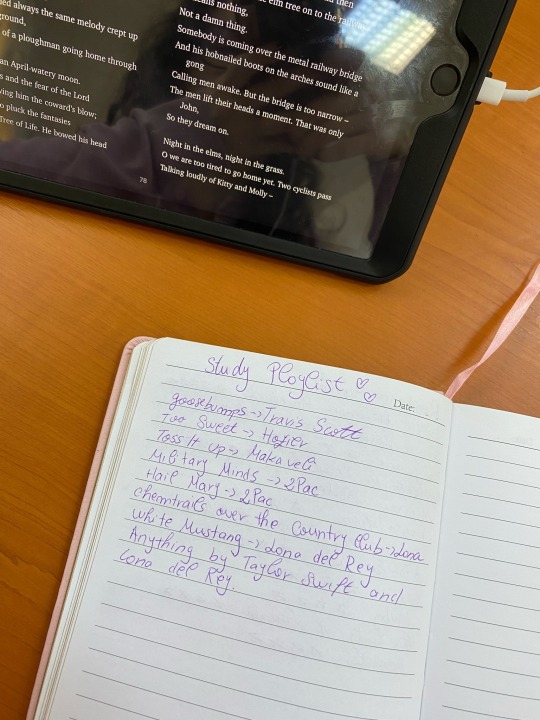 ed always the same melody crept up
ground,
of a ploughman going home through
an April-watery moon.
s and the fear of the Lord
ving him the coward's blow;
o pluck the fantasies
Tree of Life. He bowed his head
78
then
elm tree on to the railway
nothing,
Not a damn thing.
Somebody is coming over the metal railway bridge
And his hobnailed boots on the arches sound like a
gong
Calling men awake. But the bridge is too narrow –
The men lift their heads a moment. That was only
John,
So they dream on.
Night in the elms, night in the grass.
O we are too tired to go home yet. Two cyclists pass
Talking loudly of Kitty and Molly –
Study Playlist ♡ ♡
Date:
goosebumps -> Travis Scott
Too Sweet -> Hozier
Toss It Up -> Makaveli
Military Minds -> 2Pac
Hail Mary -> 2Pac
chemtrails over the Country Club -> Lana
White Mustang -> Lana del Rey
Anything by Taylor Swift and
Lana del Rey.